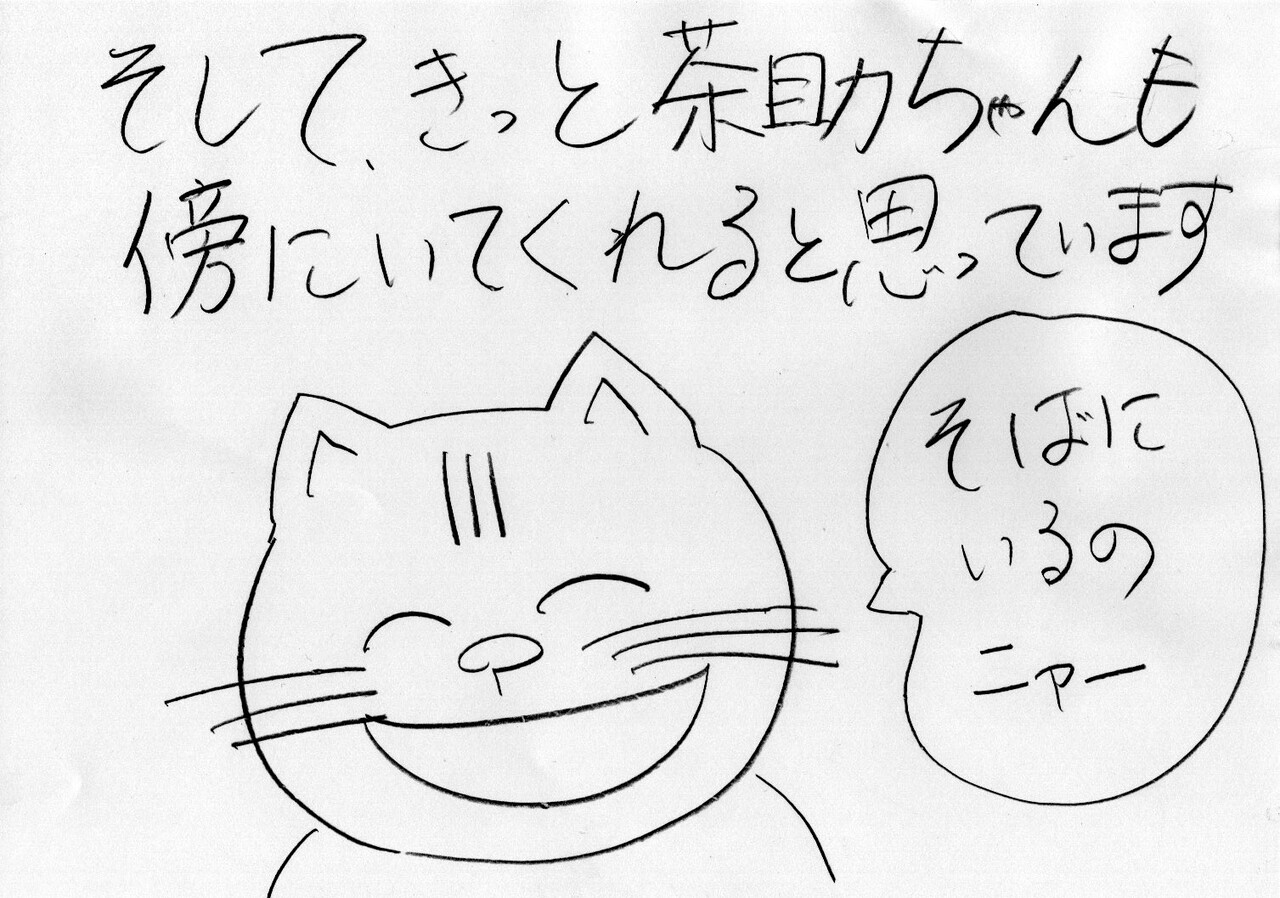 そして、きっと茶助ちゃんも
傍にいてくれると思っています
そばに
いるの
ニャー